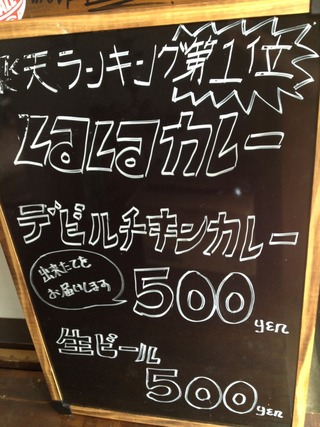 楽天ランキング第1位
LaLaカレー
デビルチキンカレー
出来たてを
お届けします
500
yen
生ビール
500
yen